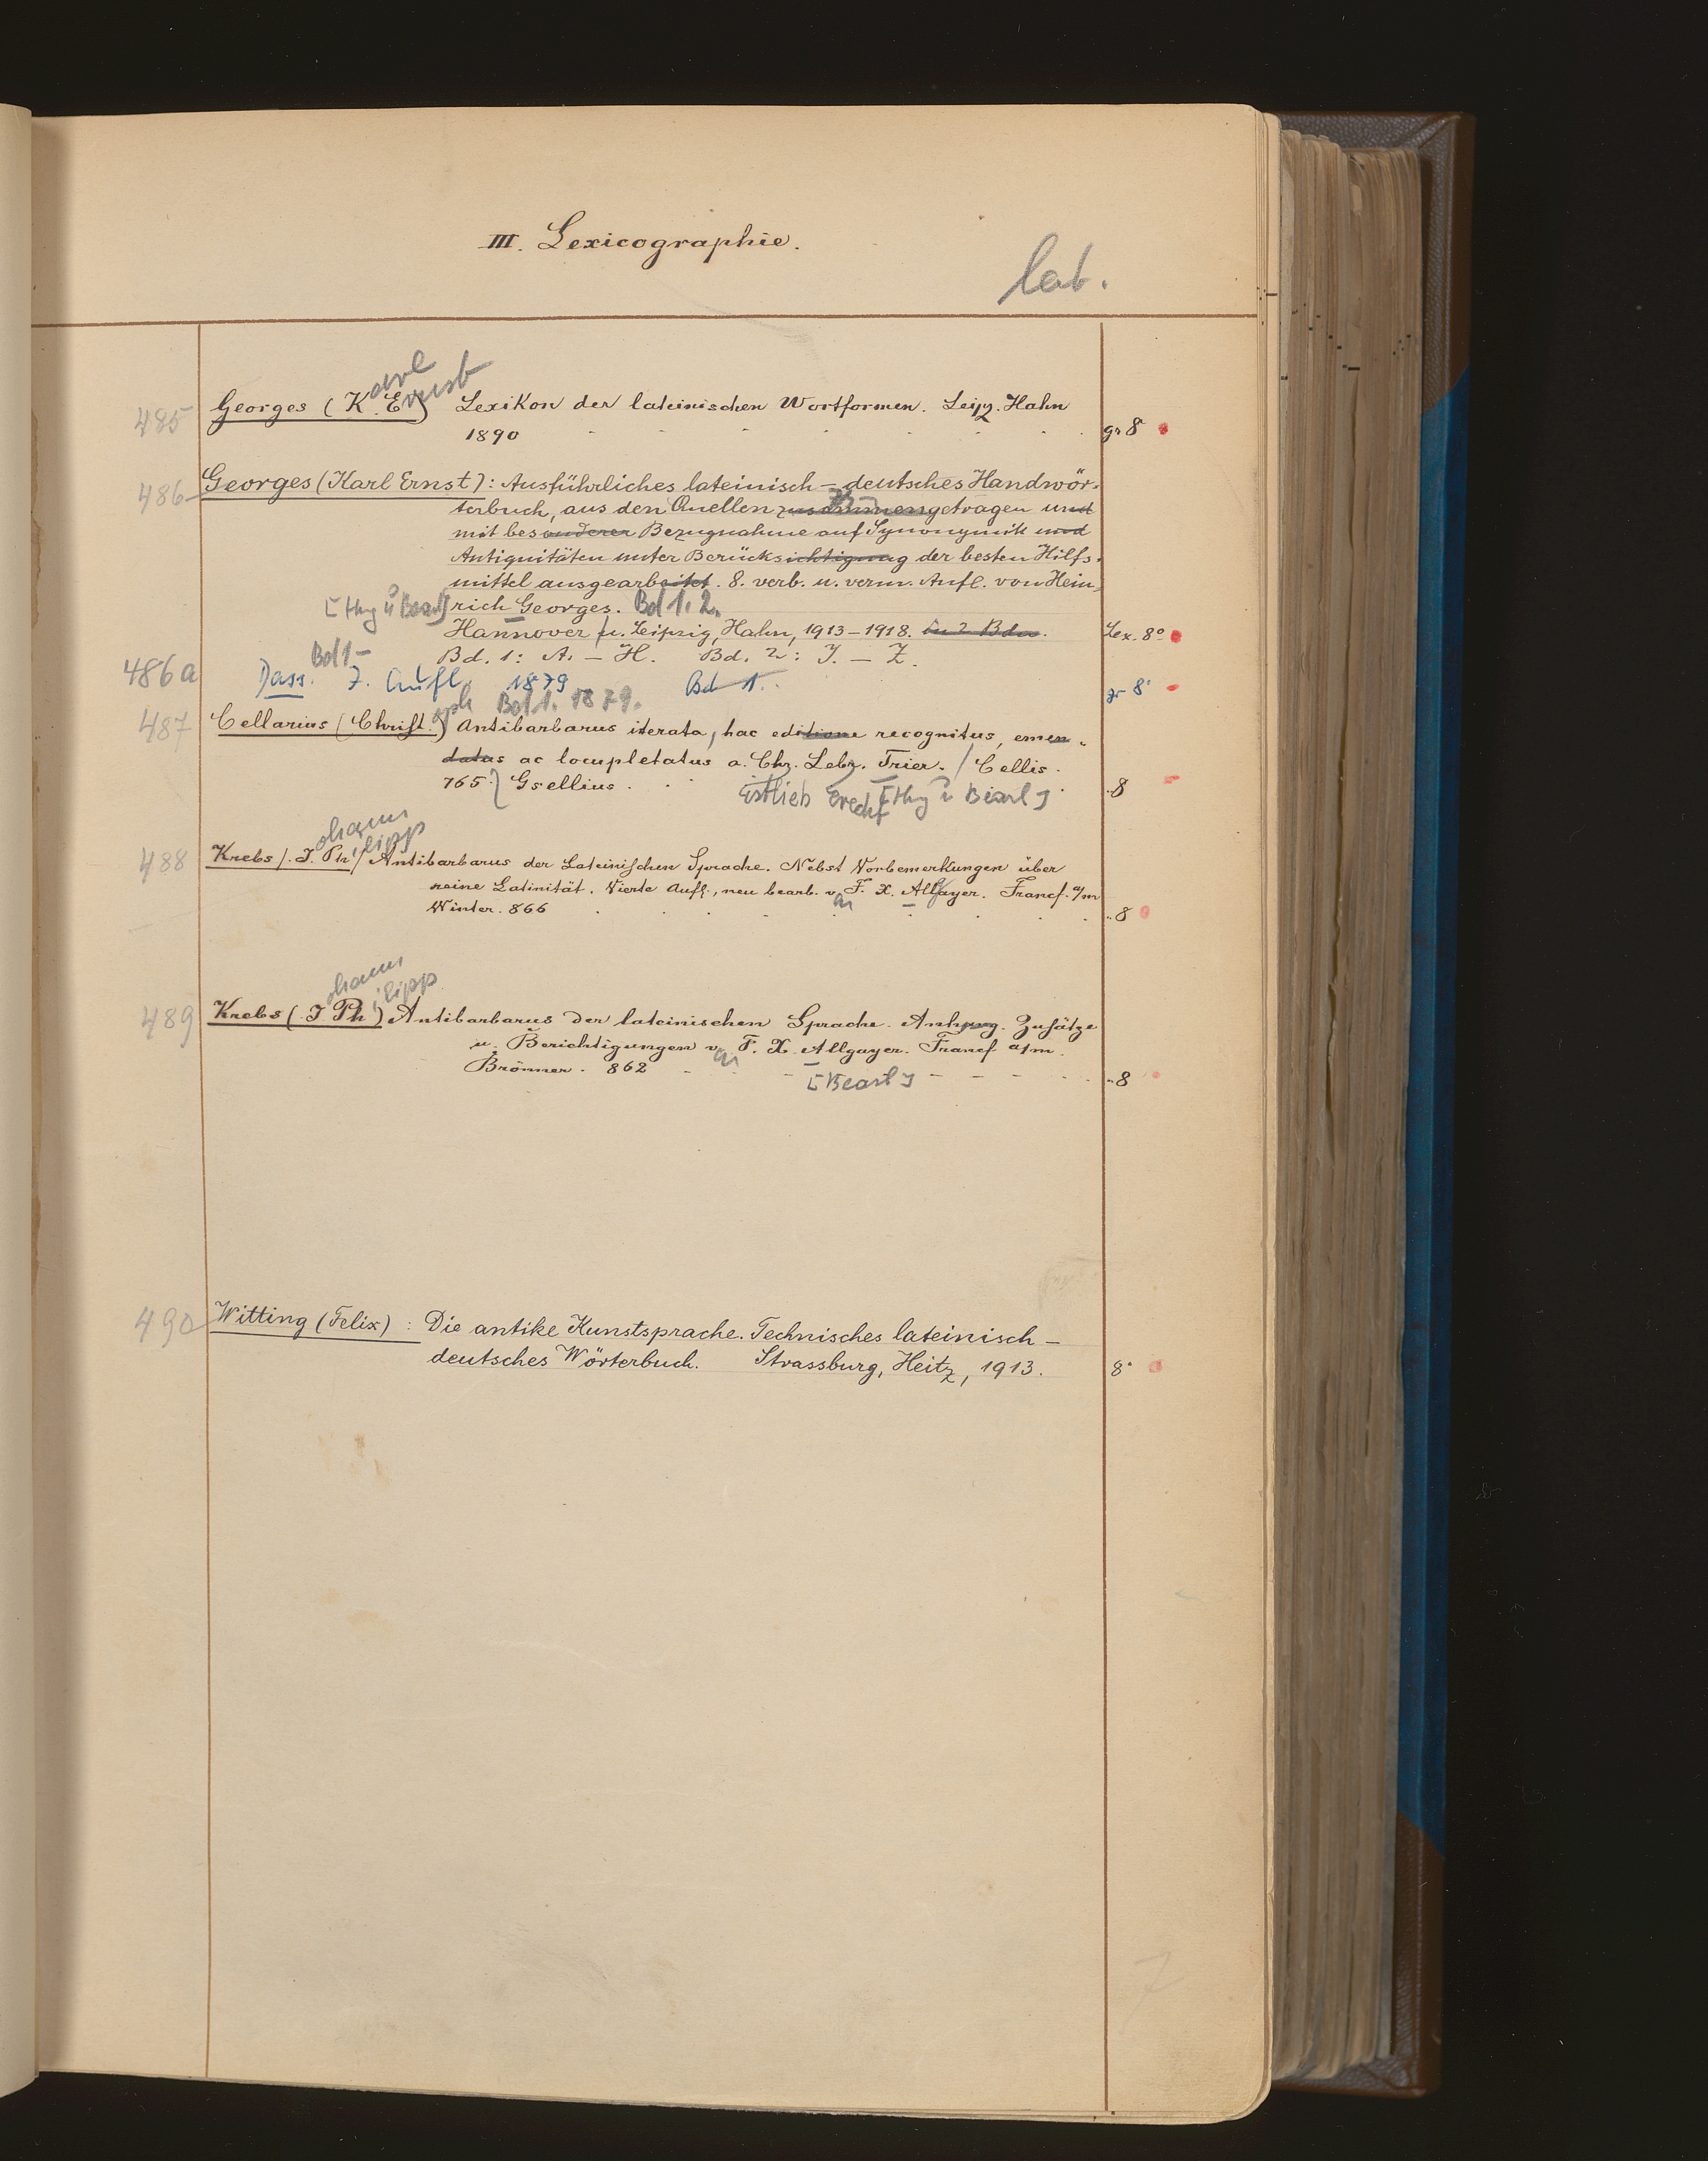 III. Lexicographie.
lat.
485 Georges (Karl Ernst) Lexikon der lateinischen Wortformen. Leipz. Hahn
1890 gr 8
486 Georges (Karl Ernst): Ausführliches lateinisch-deutsches Handwör-
terbuch, aus den Quellen zusammengetragen und
mit besonderer Bezugnahme auf Synonymik und
Antiquitäten unter Berücksichtigung der besten Hilfs-
mittel ausgearbeitet. 8. verb. u. verm. Aufl. von Hein-
[Hrg u Bearb] rich Georges. Bd 1. 2.
Hannover u. Leipzig, Hahn, 1913-1918. in 2 Bdn. Lex. 8°
Bd 1- Bd. 1: A. - H. Bd. 2: J. - Z.
486a Dass. 7. Aufl. 1879 Bd 1. gr 8°
Bd 1. 1879.
487 Cellarius (Christoph) Antibarbarus iterata, hac editione recognitus, emen-
datus ac locupletatus a. Chr. Lebr. Trier. / Cellis.
765. Gsellius. 8
488 Krebs (Johann Philipp) Antibarbarus der Lateinischen Sprache. Nebst Vorbemerkungen über
reine Latinität. Vierte Aufl., neu bearb. v. F. X. Allgayer. Francf. a/m
Winter. 866 8
489 Krebs (Johann Philipp) Antibarbarus der lateinischen Sprache. Anhang. Zusätze
u. Berichtigungen v. F. X. Allgayer. Francf a/m.
Brönner. 862 [Bearb] 8
490 Witting (Felix): Die antike Kunstsprache. Technisches lateinisch-
deutsches Wörterbuch. Strassburg, Heitz, 1913. 8°